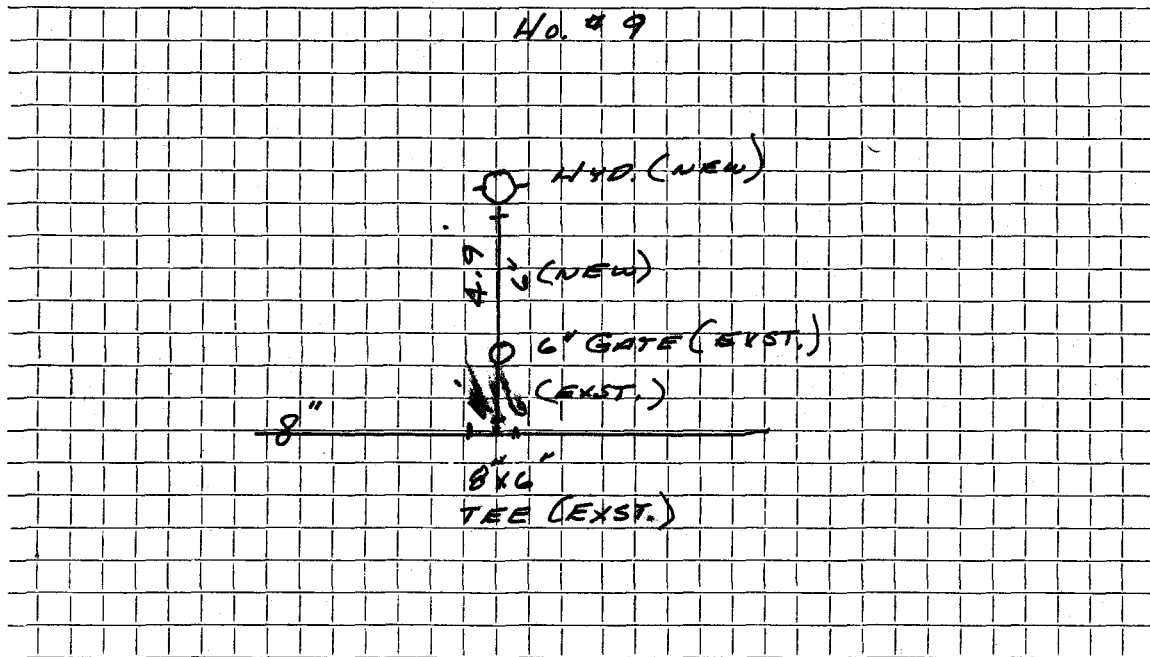 HYD. (NEW)
4.9
6" (NEW)
6" GATE (EXST.)
(EXST.)
8"
8"X6"
TEE (EXST.)